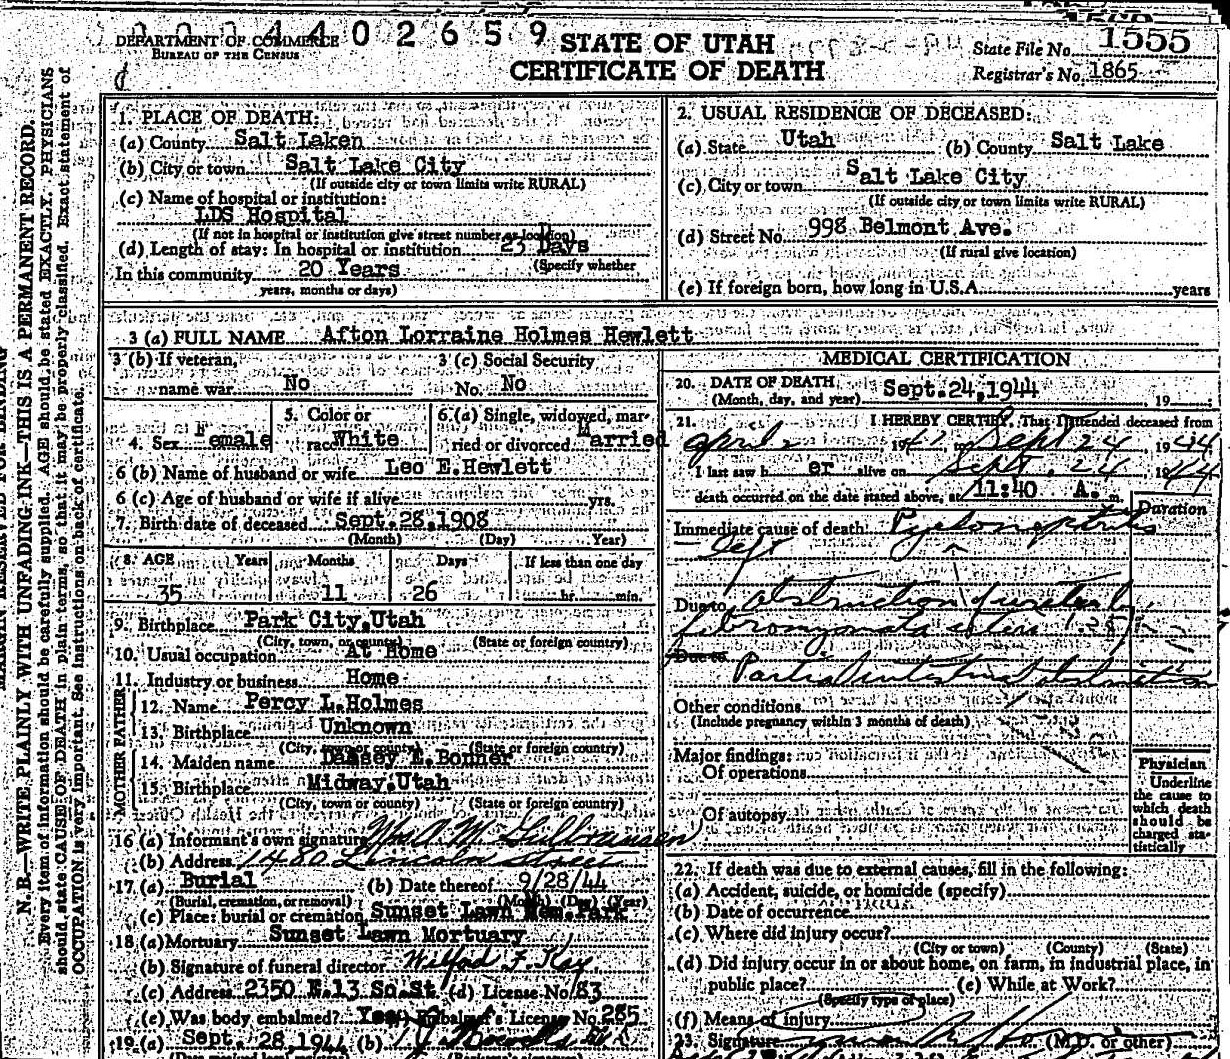 DEPARTMENT OF COMMERCE
BUREAU OF THE CENSUS
4 4 0 2 6 5 9
STATE OF UTAH
CERTIFICATE OF DEATH
State File No. 1555
Registrar's No. 1865
N. B.—WRITE PLAINLY WITH UNFADING INK—THIS IS A PERMANENT RECORD.
Every item of information should be carefully supplied. AGE should be stated EXACTLY. PHYSICIANS
should state CAUSE OF DEATH in plain terms, so that it may be properly classified. Exact statement of
OCCUPATION is very important. See instructions on back of certificate.
1. PLACE OF DEATH:
(a) County Salt Laken
(b) City or town Salt Lake City
(If outside city or town limits write RURAL)
(c) Name of hospital or institution:
LDS Hospital
(If not in hospital or institution give street number or location)
(d) Length of stay: In hospital or institution 23 Days
(Specify whether
In this community 20 Years
years, months or days)
2. USUAL RESIDENCE OF DECEASED:
(a) State Utah (b) County Salt Lake
(c) City or town Salt Lake City
(If outside city or town limits write RURAL)
(d) Street No. 998 Belmont Ave.
(If rural give location)
(e) If foreign born, how long in U.S.A. years
3 (a) FULL NAME Afton Lorraine Holmes Hewlett
3 (b) If veteran, 3 (c) Social Security
name war No No. No
4. Sex Female
5. Color or
race White
6. (a) Single, widowed, mar-
ried or divorced Married
6 (b) Name of husband or wife Leo E. Hewlett
6 (c) Age of husband or wife if alive yrs.
7. Birth date of deceased Sept. 28, 1908
(Month) (Day) (Year)
8. AGE Years Months Days If less than one day
35 11 26 hr. min.
9. Birthplace Park City, Utah
(City, town, or county) (State or foreign country)
10. Usual occupation At Home
11. Industry or business Home
FATHER
12. Name Percy L. Holmes
13. Birthplace Unknown
(City, town or county) (State or foreign country)
MOTHER
14. Maiden name E. Bonner
15. Birthplace Midway, Utah
(City, town or county) (State or foreign country)
16 (a) Informant's own signature M. Gulbransen
(b) Address 1480 Lincoln Street
17. (a) Burial (b) Date thereof 9/28/44
(Burial, cremation, or removal) (Month) (Day) (Year)
(c) Place: burial or cremation Sunset Lawn Mem. Park
18 (a) Mortuary Sunset Lawn Mortuary
(b) Signature of funeral director Wilford F. Kay
(c) Address 2350 E. 13 So. St. (d) License No. 83
(e) Was body embalmed? Yes (f) Embalmer's License No. 285
19. (a) Sept. 28, 1944 (b)
MEDICAL CERTIFICATION
20. DATE OF DEATH Sept. 24, 1944
(Month, day, and year) 19
21. I HEREBY CERTIFY, That I attended deceased from
April 2 19 to Sept 24 1944
I last saw her alive on Sept. 24 1944
death occurred on the date stated above, at 11:40 A. m.
Duration
Immediate cause of death: Pyelonephritis
left
Due to Obstruction of ureter by
fibromyomata uteri
Due to
Partial intestinal obstruction
Other conditions
(Include pregnancy within 3 months of death)
Major findings:
Of operations
Of autopsy
Physician
Underline
the cause to
which death
should be
charged sta-
tistically
22. If death was due to external causes, fill in the following:
(a) Accident, suicide, or homicide (specify)
(b) Date of occurrence
(c) Where did injury occur?
(City or town) (County) (State)
(d) Did injury occur in or about home, on farm, in industrial place, in
public place? (e) While at Work?
(Specify type of place)
(f) Means of injury
23. Signature (M.D. or other)